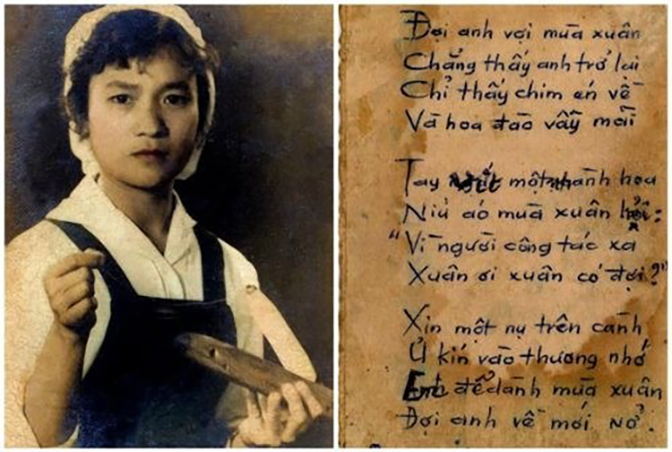 Đợi anh vợi mùa xuân
Chẳng thấy anh trở lại
Chỉ thấy chim én về
Và hoa đào vẫy mãi
Tay một nhành hoa
Níu áo mùa xuân hỏi
"Vì người công tác xa
Xuân ơi xuân có đợi?"
Xin một nụ trên cành
Ủ kín vào thương nhớ
để dành mùa xuân
Đợi anh về mới nở.